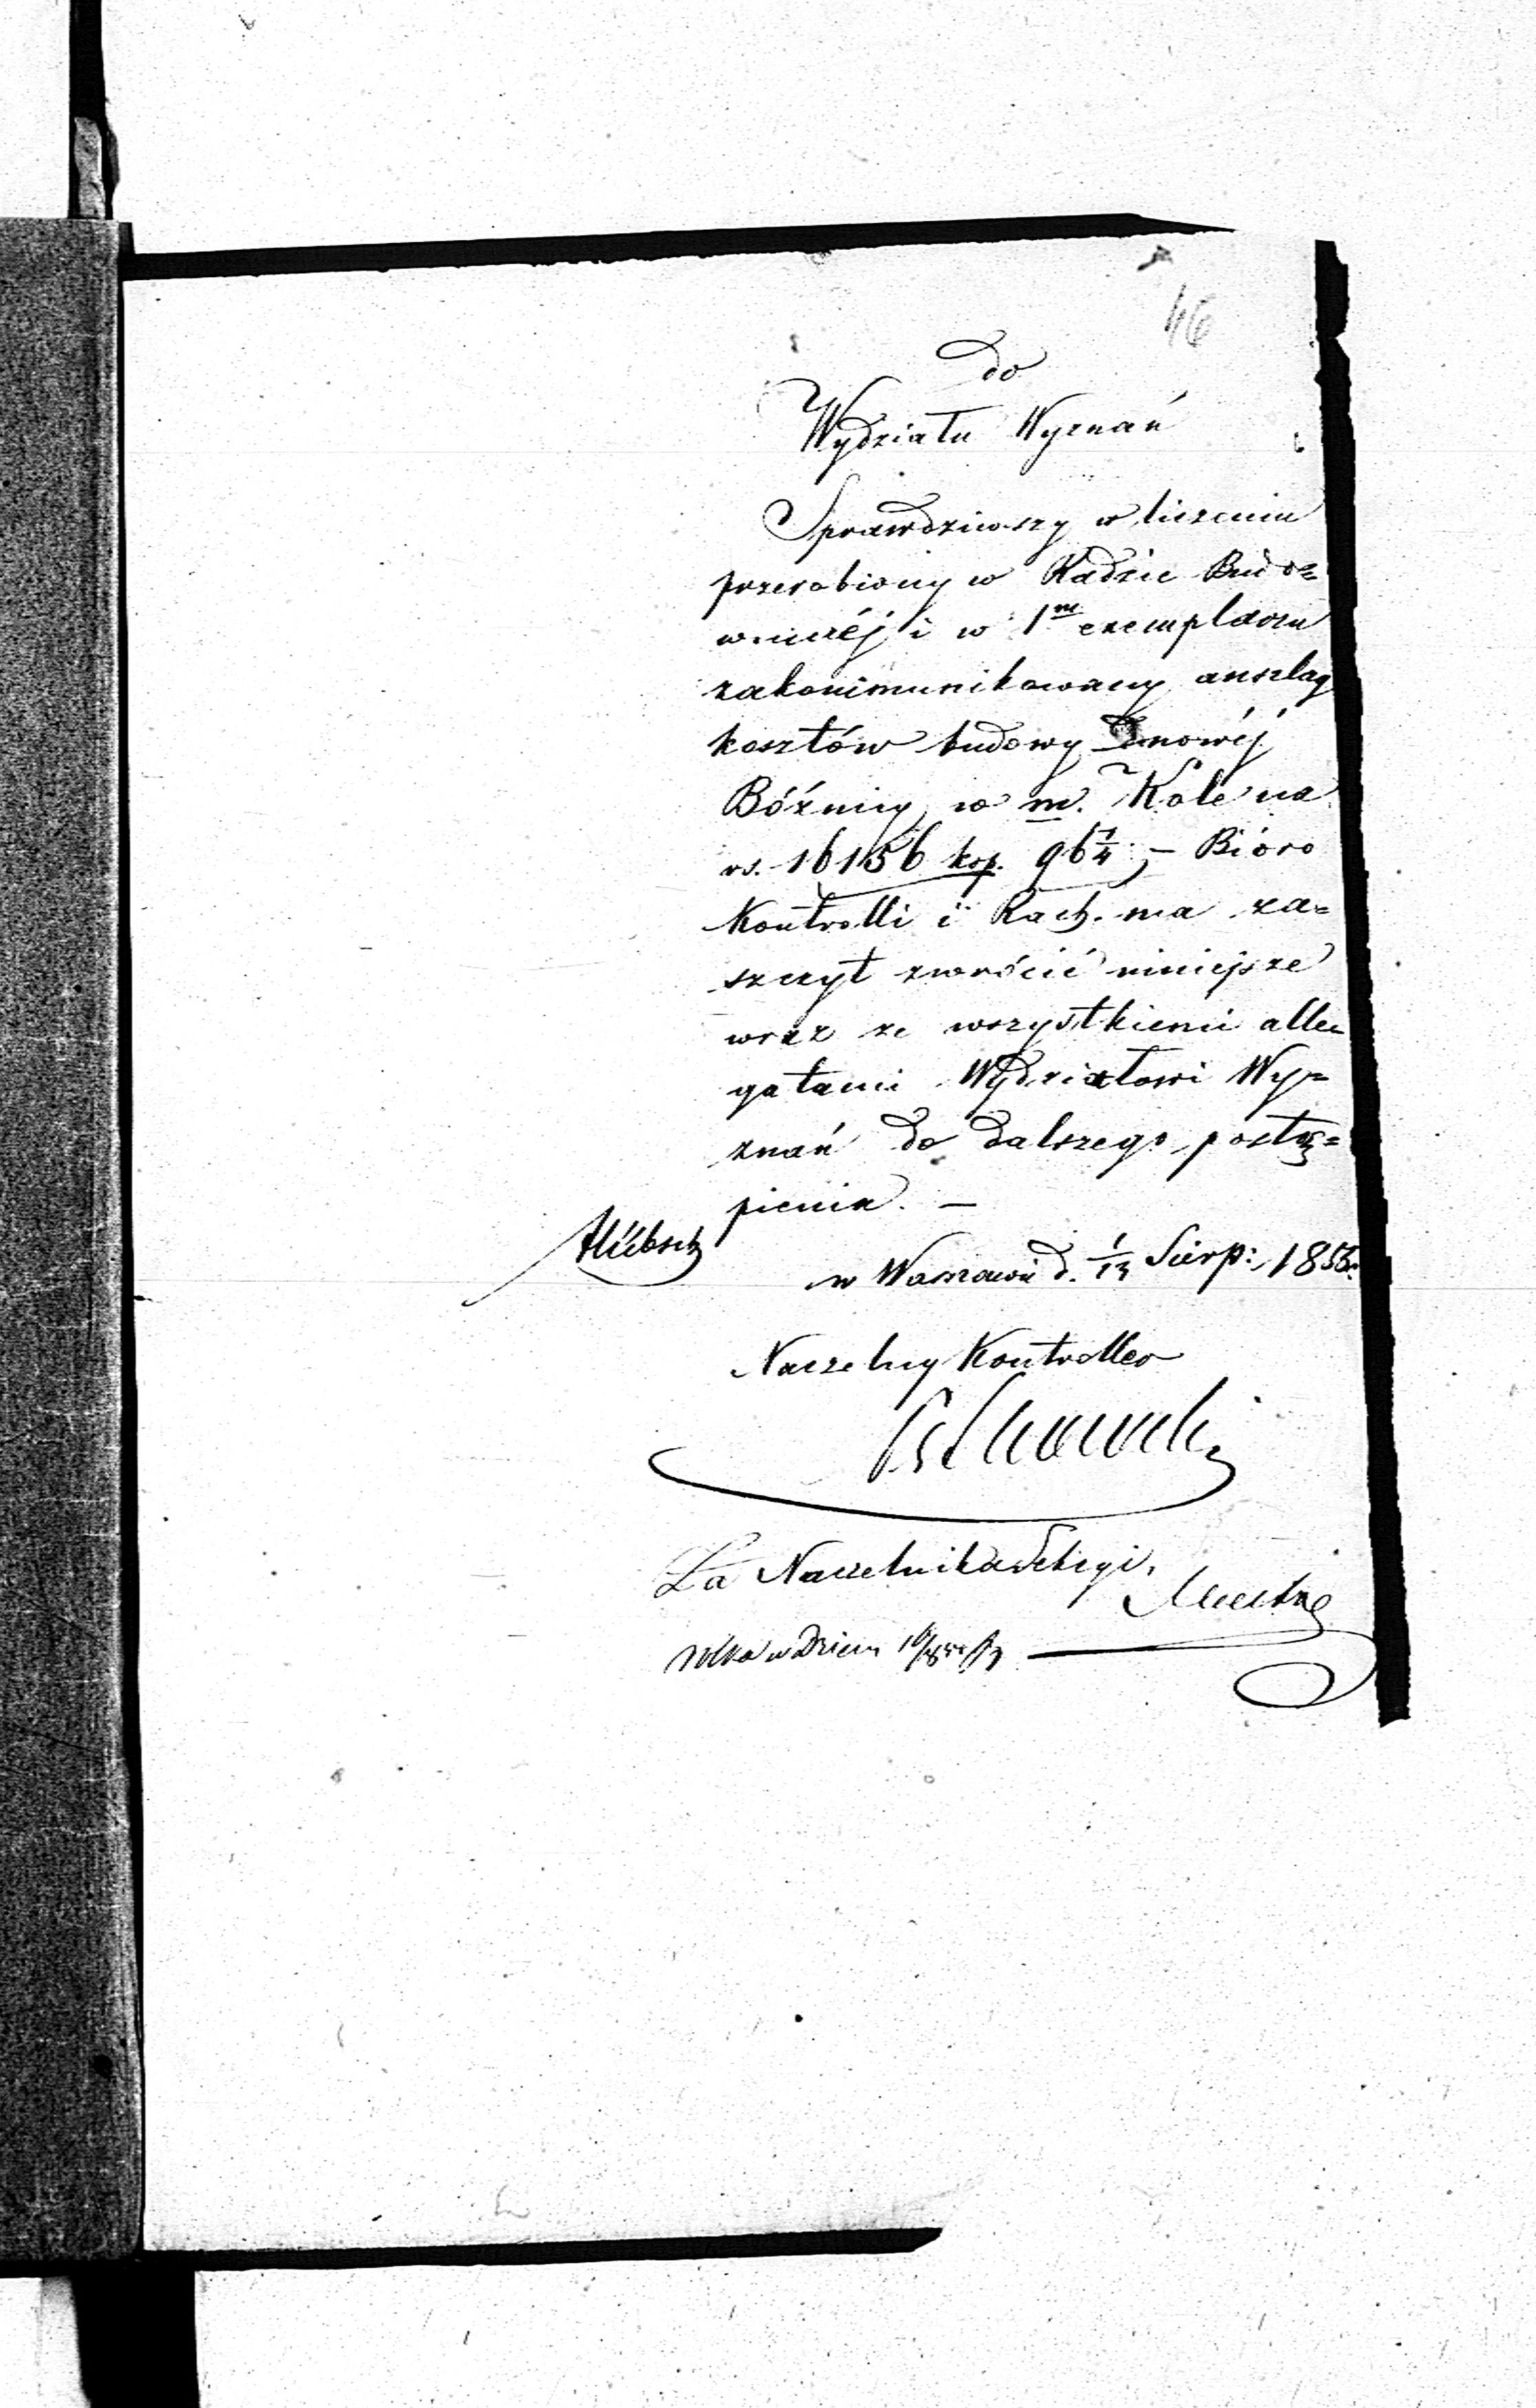 46
do
Wydziału Wyznań
Sprawdziwszy w liczeniu
przerobiony w Radzie Budo=
wniczéj i w 1m exemplarzu
zakommunikowany anszlag
kosztów budowy nowéj
Bóźnicy w m. Kole na
rs. 16156 kop. 96 1/4; – Bióro
Kontrolli i Rach. ma za=
szczyt zwrócić niniejsze
wraz ze wszystkiemi alle=
gatami Wydziałowi Wy=
znań do dalszego postę=
pienia. –
Hübsch
w Warszawie d. 1/13 Sierp: 185
Naczelny Kontroller
Za Naczelnika Sekcyi,